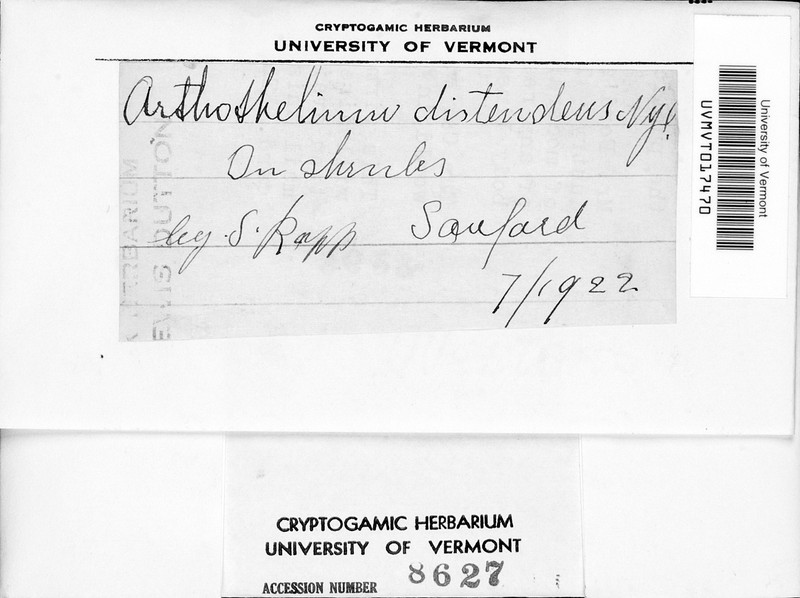 CRYPTOGAMIC HERBARIUM
UNIVERSITY OF VERMONT
Arthothelium distendens Nyl.
On shrubs
leg. S. Rapp Sanford
7/1922
HERBARIUM
DUTTON
University of Vermont
UVMVT017470
CRYPTOGAMIC HERBARIUM
UNIVERSITY OF VERMONT
ACCESSION NUMBER 8627